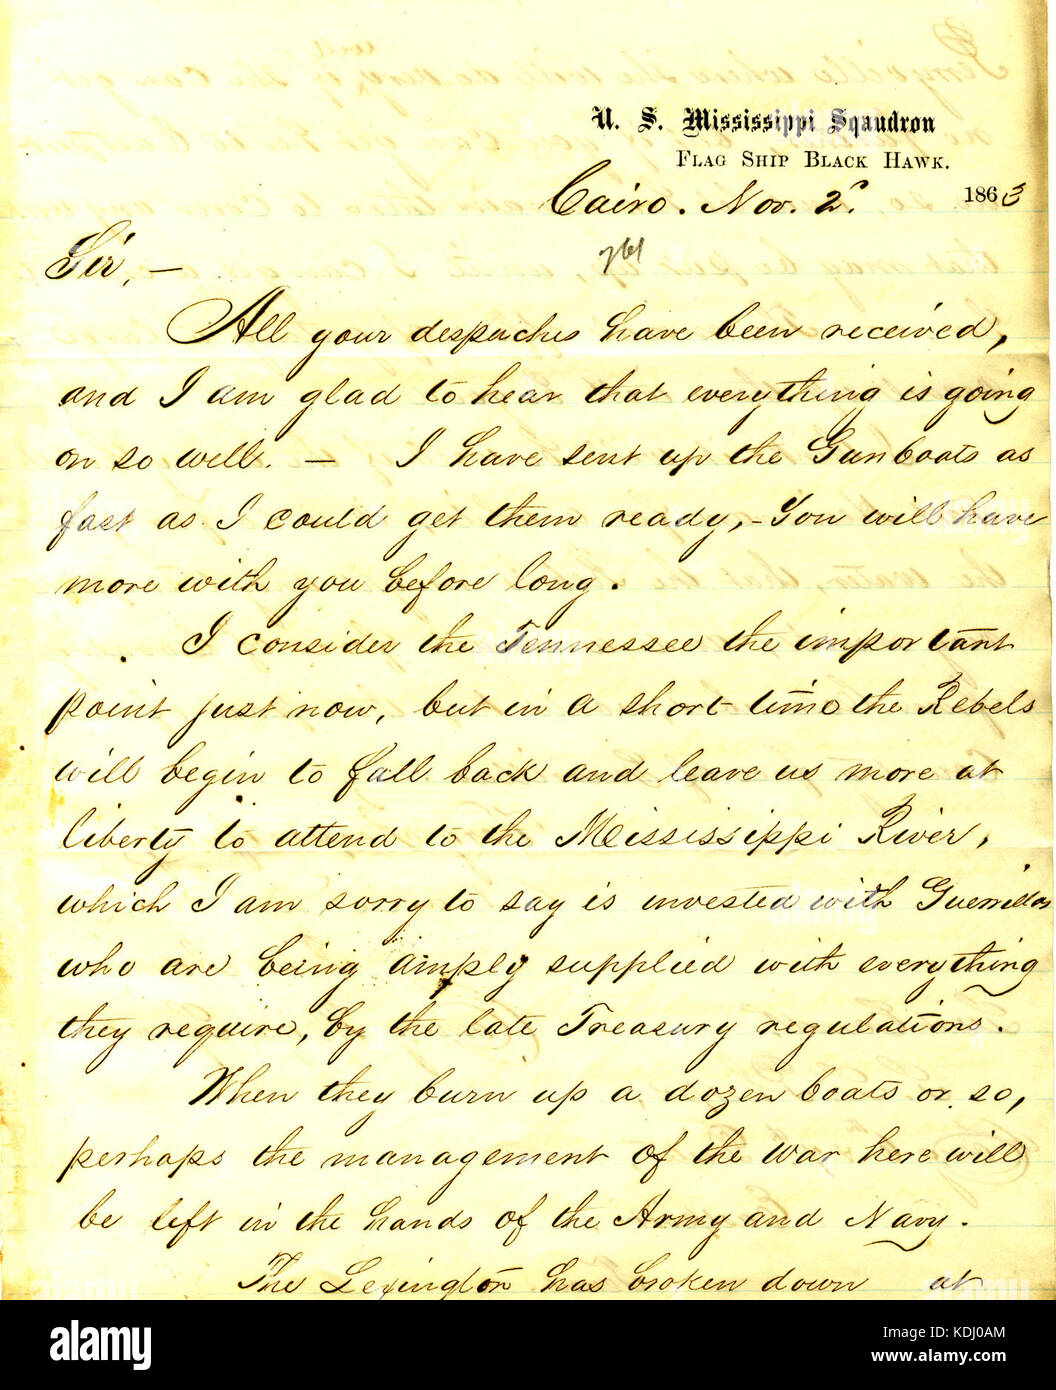 U. S. Mississippi Sqaudron
FLAG SHIP BLACK HAWK.
Cairo. Nov. 2d. 1863
761
Sir, —
All your despaches have been received,
and I am glad to hear that everything is going
on so well. — I have sent up the Gunboats as
fast as I could get them ready, - You will have
more with you before long.
I consider the Tennessee the important
point just now, but in a short time the Rebels
will begin to fall back and leave us more at
liberty to attend to the Mississippi River,
which I am sorry to say is invested with Guerrillas
who are being amply supplied with everything
they require, by the late Treasury regulations.
When they burn up a dozen boats or so,
perhaps the management of the war here will
be left in the hands of the Army and Navy.
The Lexington has broken down at
alamy
Image ID: KDJ0AM
www.alamy.com